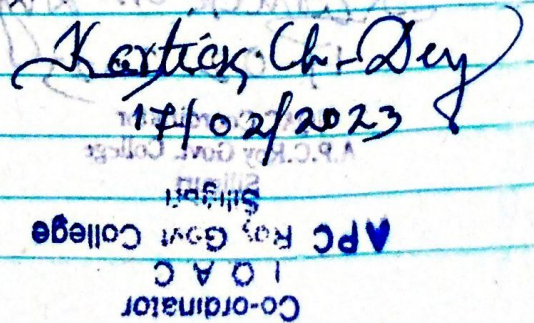 Kartick Ch. Dey
17/02/2023
A.P.C. Roy Govt. College
Siliguri
Co-ordinator
I Q A C
APC Roy Govt College
Siliguri